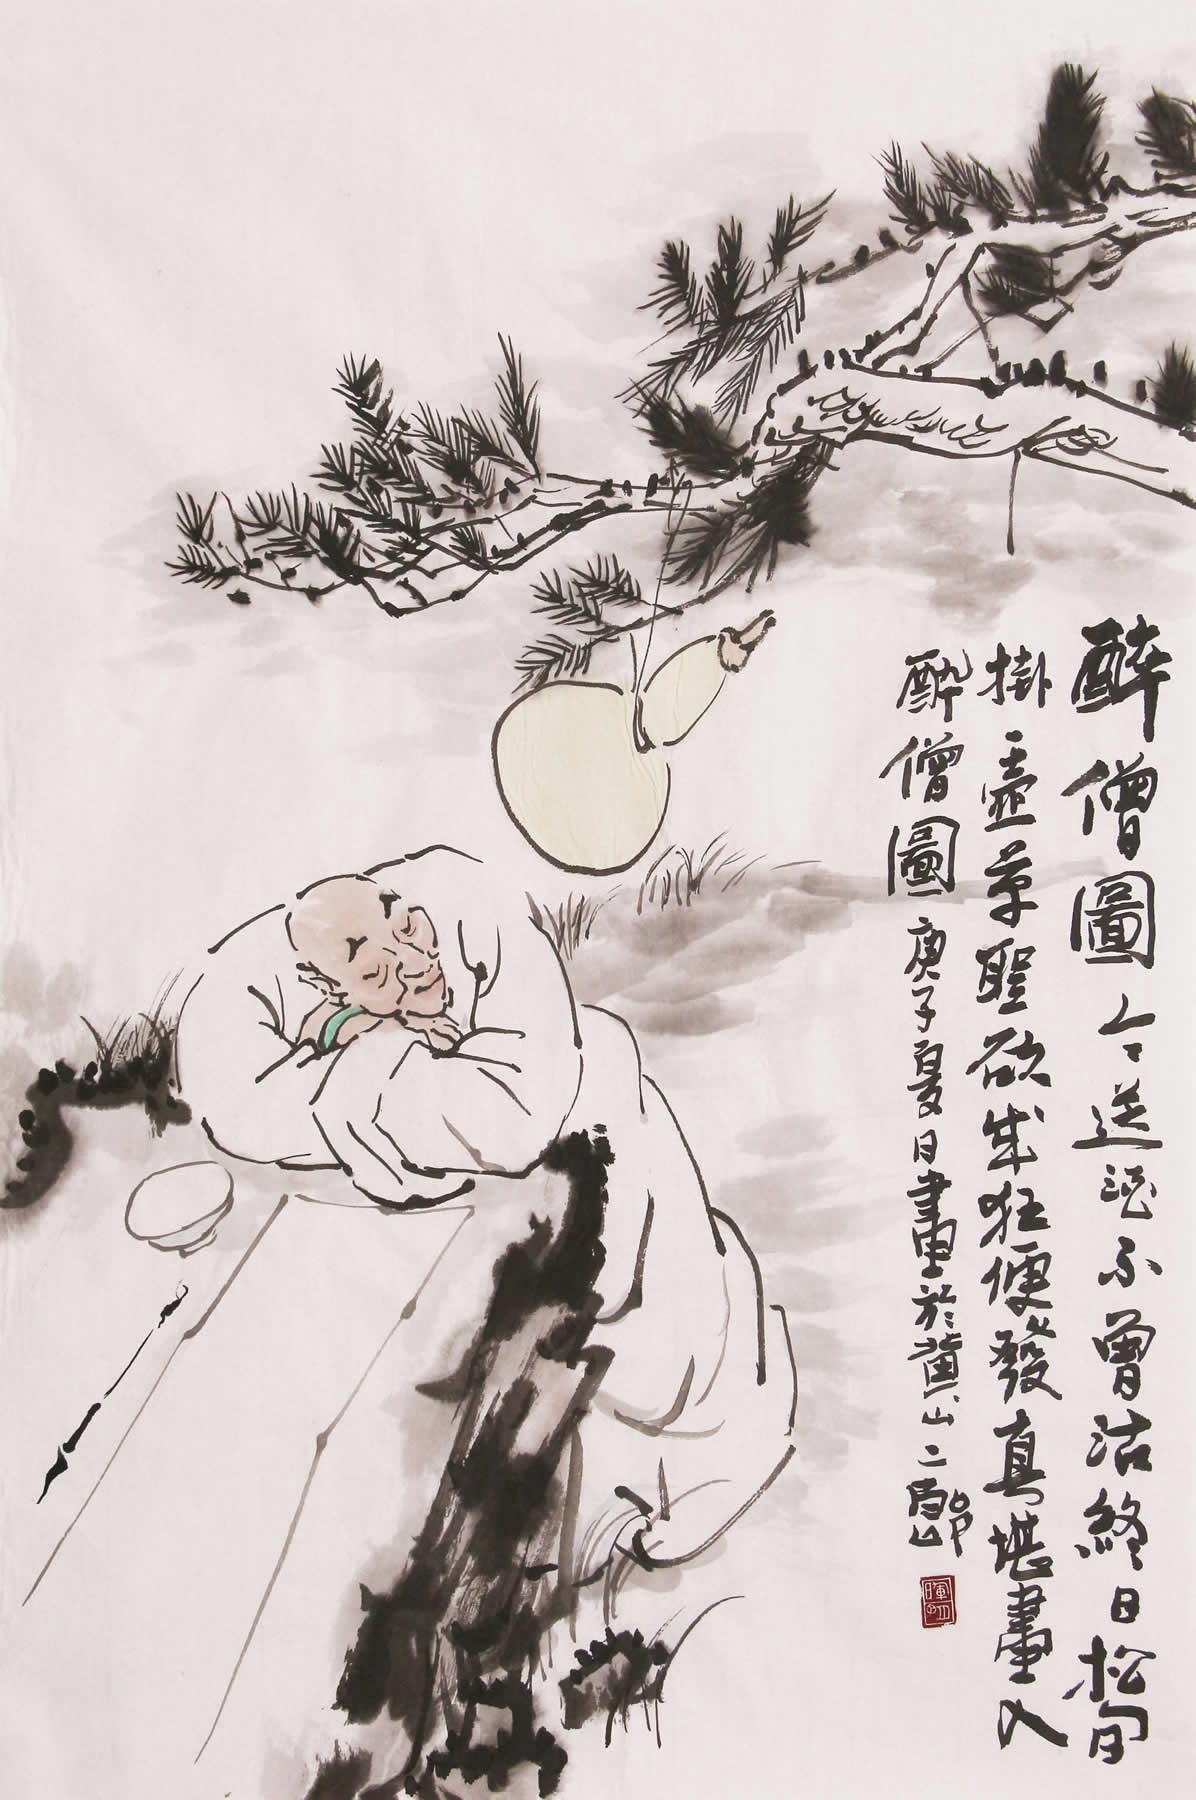 醉僧圖 人人送酒不曾沽終日松間
掛一壺草聖欲成狂便發真堪畫入
醉僧圖 庚子夏日畫於黃山